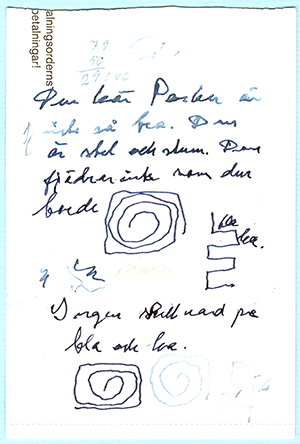 alningsorderns
betalningar!
79
50
29.00
Den här Parker är
inte så bra. Den
är stel och stum. Den
fjädrar inte som den
borde
bla
bra.
Ingen skillnad på
bla och bra.